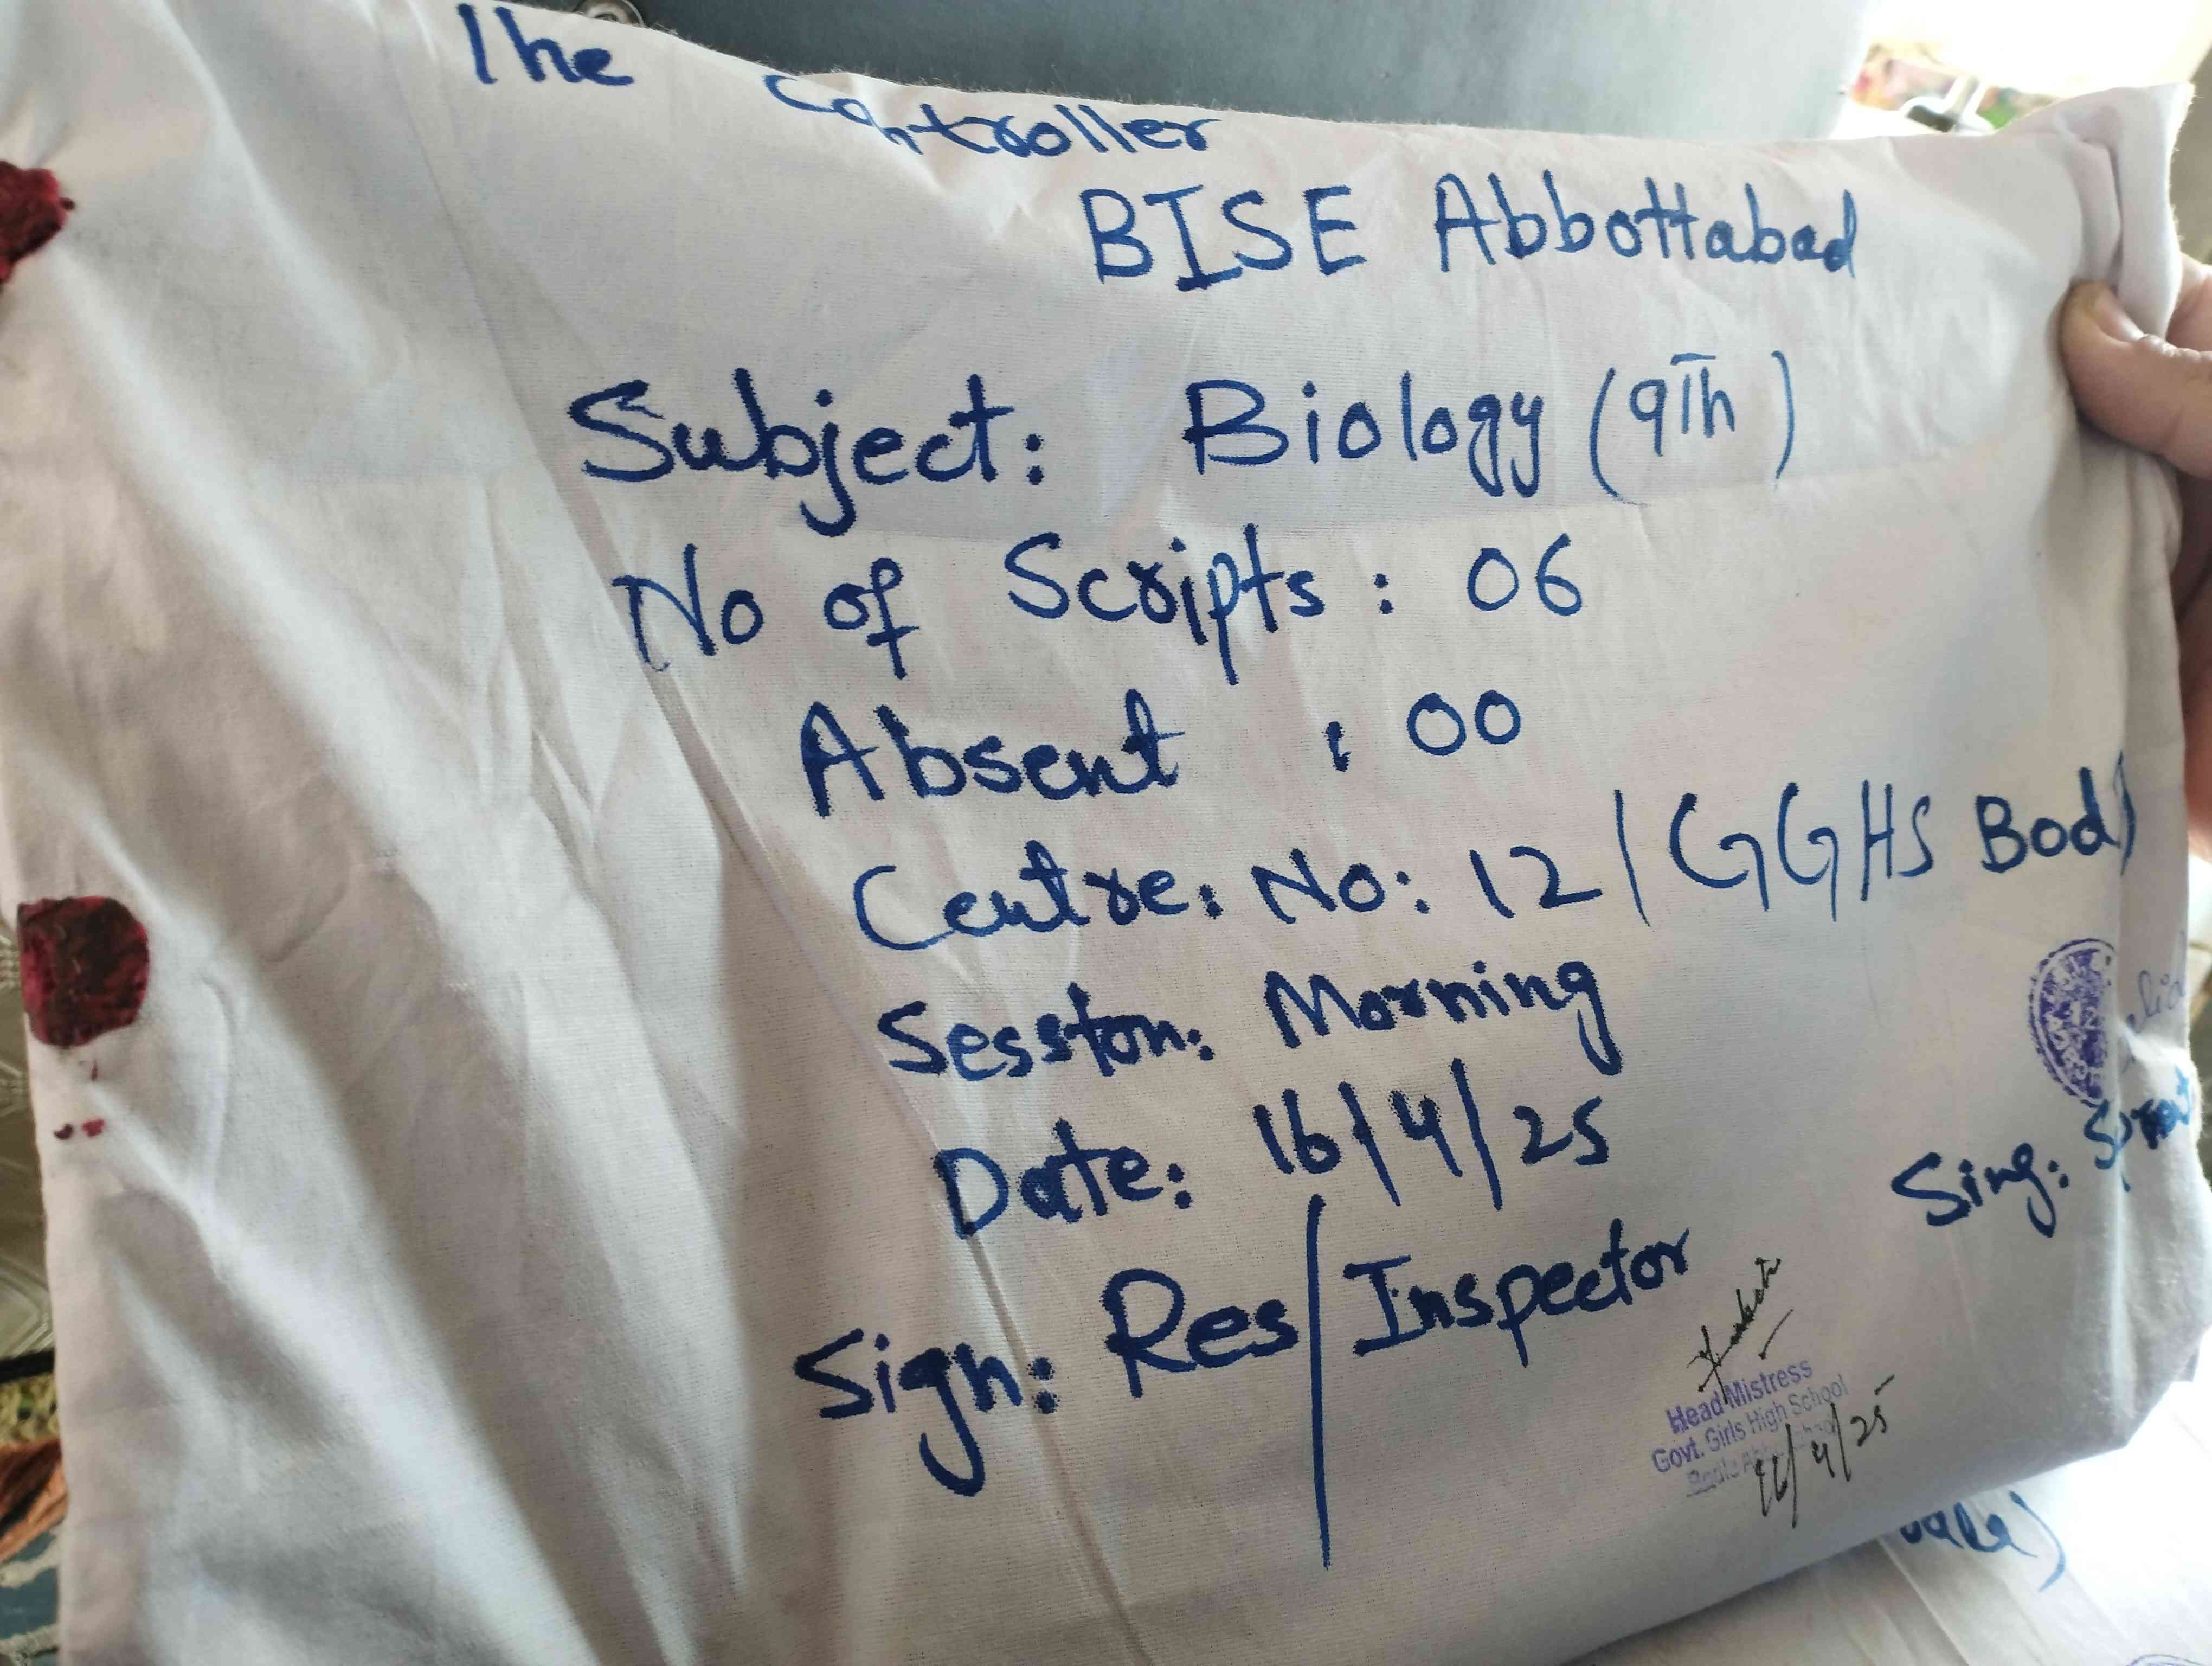 The Controller
BISE Abbottabad
Subject: Biology (9Th)
No of Scripts: 06
Absent : 00
Centre: No: 12 / GGHS Bod
Session: Morning
Date: 16/4/25
Sing:
Sign: Res/Inspector
Head Mistress
Govt. Girls High School
16/4/25